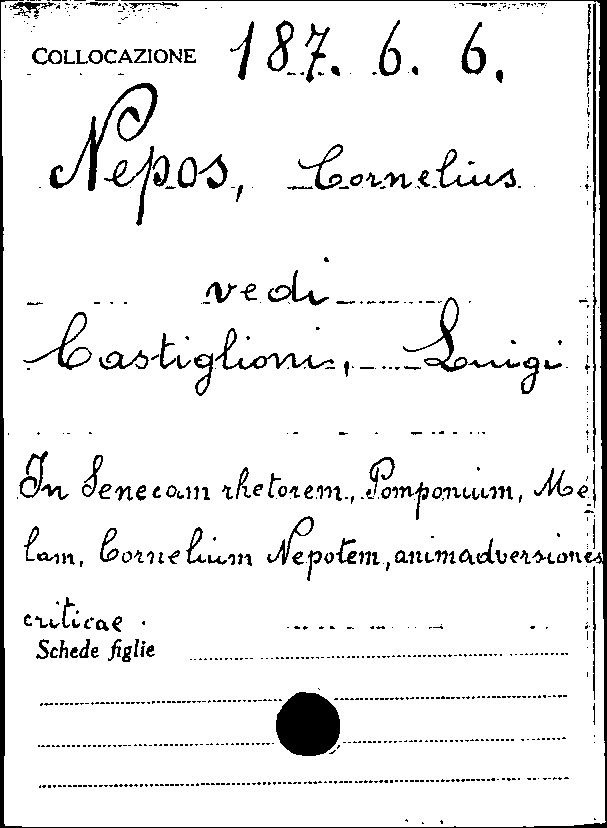 COLLOCAZIONE 187. 6. 6.
Nepos, Cornelius
vedi
Castiglioni, Luigi
In Senecam rhetorem, Pomponium, Me
lam, Cornelium Nepotem, animadversiones
criticae.
Schede figlie